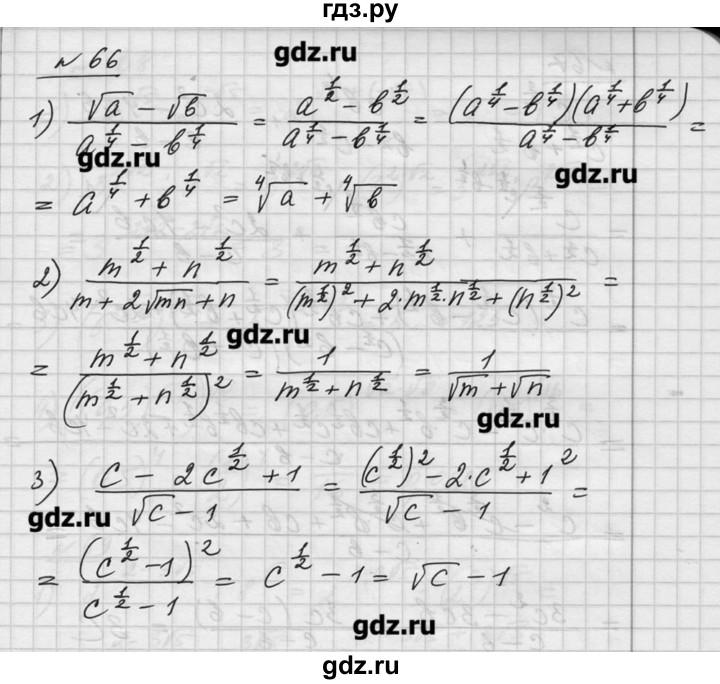 гдз.ру
№ 66
gdz.ru
1) (√a − √b)/(a^(1/4) − b^(1/4)) = (a^(1/2) − b^(1/2))/(a^(1/4) − b^(1/4)) = ((a^(1/4) − b^(1/4))(a^(1/4) + b^(1/4)))/(a^(1/4) − b^(1/4)) =
gdz.ru
gdz.ru
= a^(1/4) + b^(1/4) = ⁴√a + ⁴√b
2) (m^(1/2) + n^(1/2))/(m + 2√mn + n) = (m^(1/2) + n^(1/2))/((m^(1/2))^2 + 2·m^(1/2)·n^(1/2) + (n^(1/2))^2) =
gdz.ru
= (m^(1/2) + n^(1/2))/(m^(1/2) + n^(1/2))^2 = 1/(m^(1/2) + n^(1/2)) = 1/(√m + √n)
gdz.ru
3) (c − 2c^(1/2) + 1)/(√c − 1) = ((c^(1/2))^2 − 2·c^(1/2) + 1^2)/(√c − 1) =
gdz.ru
= (c^(1/2) − 1)^2/(c^(1/2) − 1) = c^(1/2) − 1 = √c − 1
gdz.ru
gdz.ru